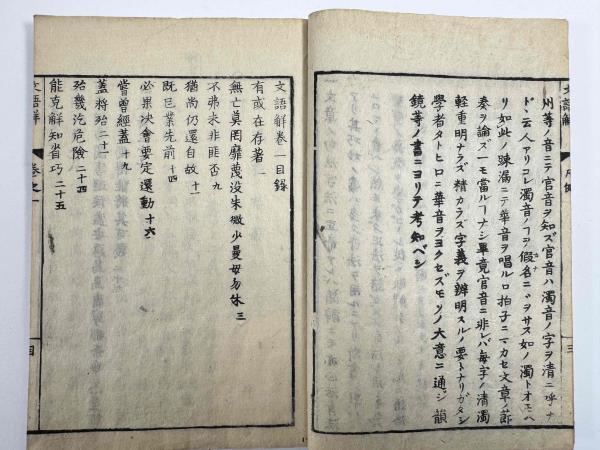 州等ノ音ニテ官音ヲ知ズ官音ハ濁音ノ字ヲ清ニ呼ナ
ドヽ云人アリコレ濁音ノヿヲ假名ニヾヲサス如ノ濁トオモヘ
リ如此ノ踈漏ニテ華音ヲ唱ルロ拍子ニマカセ文章ノ節
奏ヲ論ズ一モ當ルヿナシ畢竟官音ニ非レバ毎字ノ清濁
軽重明ナラズ精カラズ字義ヲ辨明スルノ要トナリガタシ
學者タトヒロニ華音ヲヨクセズモソノ大意ニ通ジ韻
鏡等ノ書ニヨリテ考知ベシ
文語解
三
文語解卷一目録
有或在存著 一
無亡莫罔靡蔑没朱微少曼毋勿休 三
不弗未非匪否 九
猶尚仍還自故 十一
既已業先前 十四
必果决會要定還動 十六
嘗曾經蓋 十九
蓋將殆 二十一
殆幾汔危險 二十四
能克解知省巧 二十五
文語解
卷之一
目